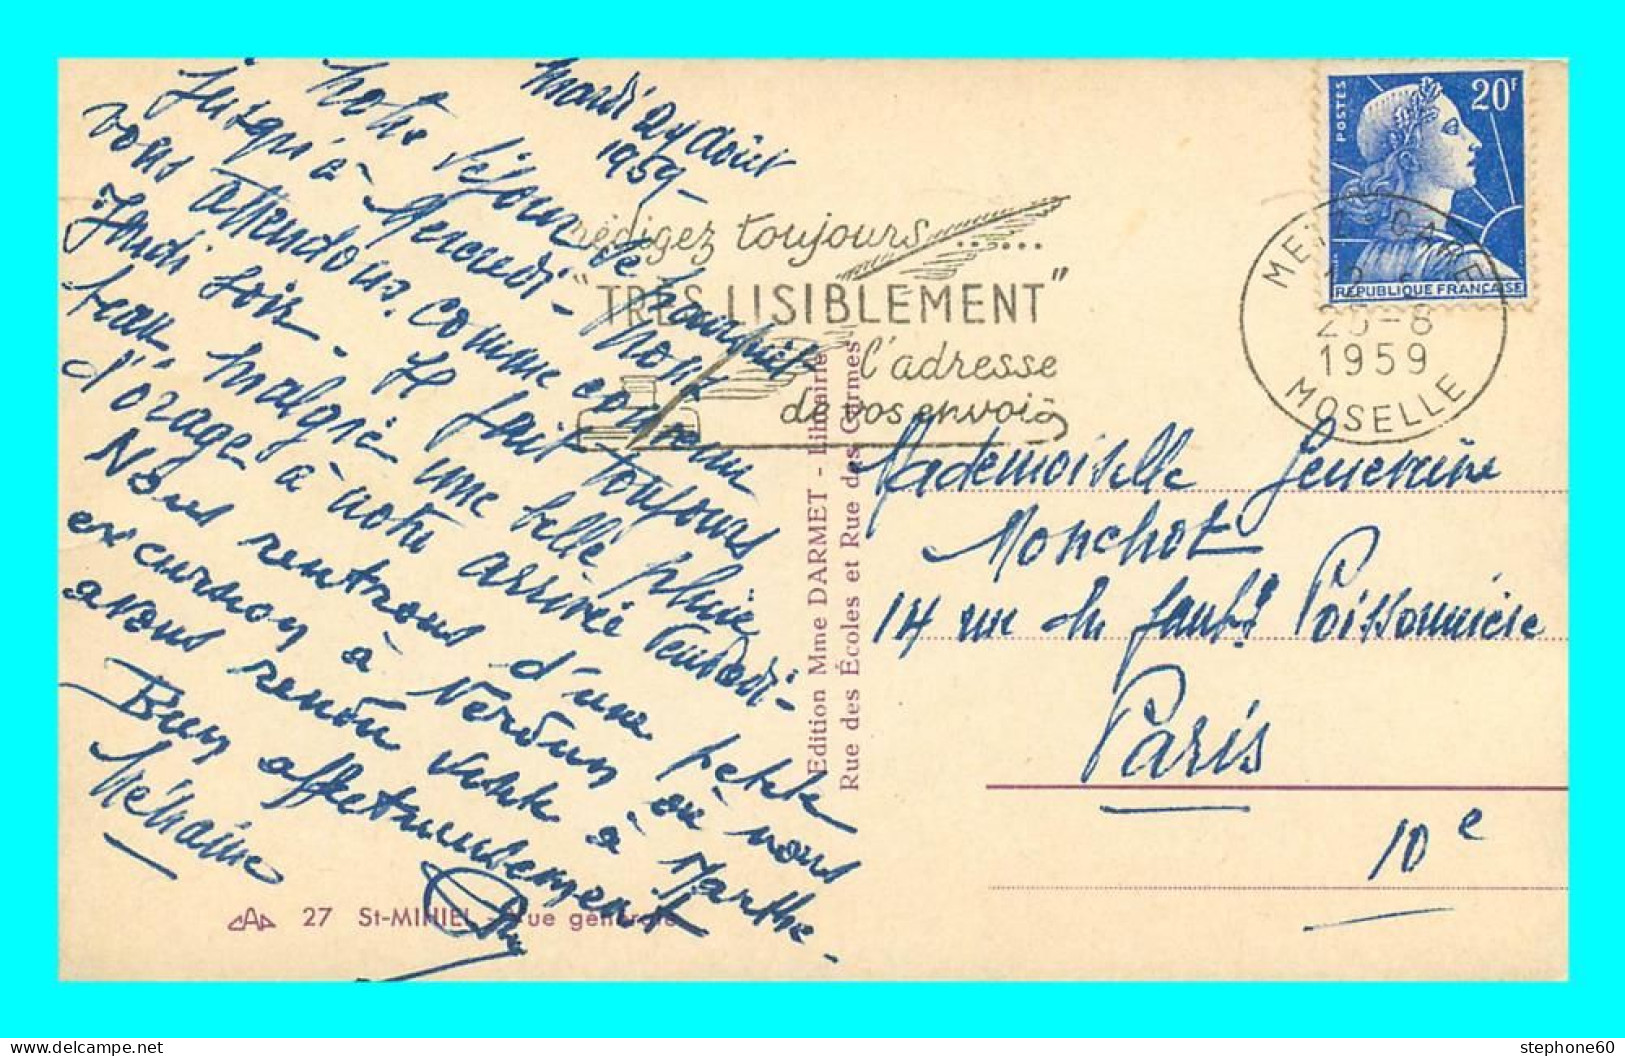 Mardi 24 Août
1959 -
Notre séjour se
jusqu'à Mercredi - Nous
vous attendons, comme convenu
Jeudi soir. Il fait toujours
beau, malgré une belle pluie
d'orage à notre arrivée Vendredi -
Nous rentrons d'une petite
excursion à Verdun où nous
avons rendu visite à Marthe -
Bien affectueusement
27 St-MIHIEL - Vue générale
Edition Mme DARMET - Librairie
Rue des Écoles et Rue des Carmes
Rédigez toujours ......
"TRÈS LISIBLEMENT"
l'adresse
de vos envois
POSTES
20F
REPUBLIQUE FRANÇAISE
METZ GARE
25-8
1959
MOSELLE
Mademoiselle
Monchot
14 rue du Faubg Poissonnière
Paris
10e
stephone60